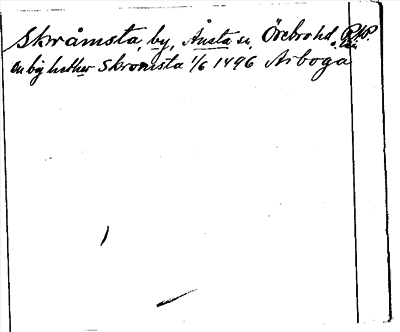 Skråmsta, by, Ånsta sn, Örebro hd, Ö. län
en by hether Skromsta 1/6 1496 Arboga